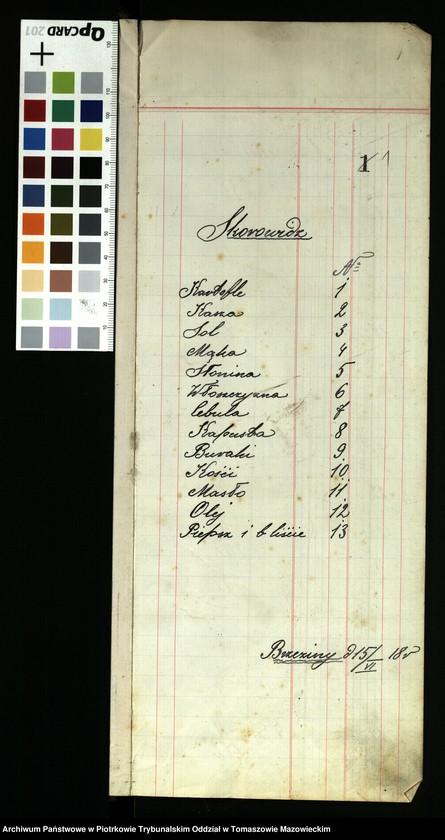 QPCARD 201
1
1
Skorowidz
№
Kartofle 1
Kasza 2
Sol 3
Mąka 4
Słonina 5
Włoszczyzna 6
Cebula 7
Kapusta 8
Buraki 9
Kości 10
Masło 11
Olej 12
Pieprz i b liście 13
Brzeziny d 15/VI 18r
Archiwum Państwowe w Piotrkowie Trybunalskim Oddział w Tomaszowie Mazowieckim